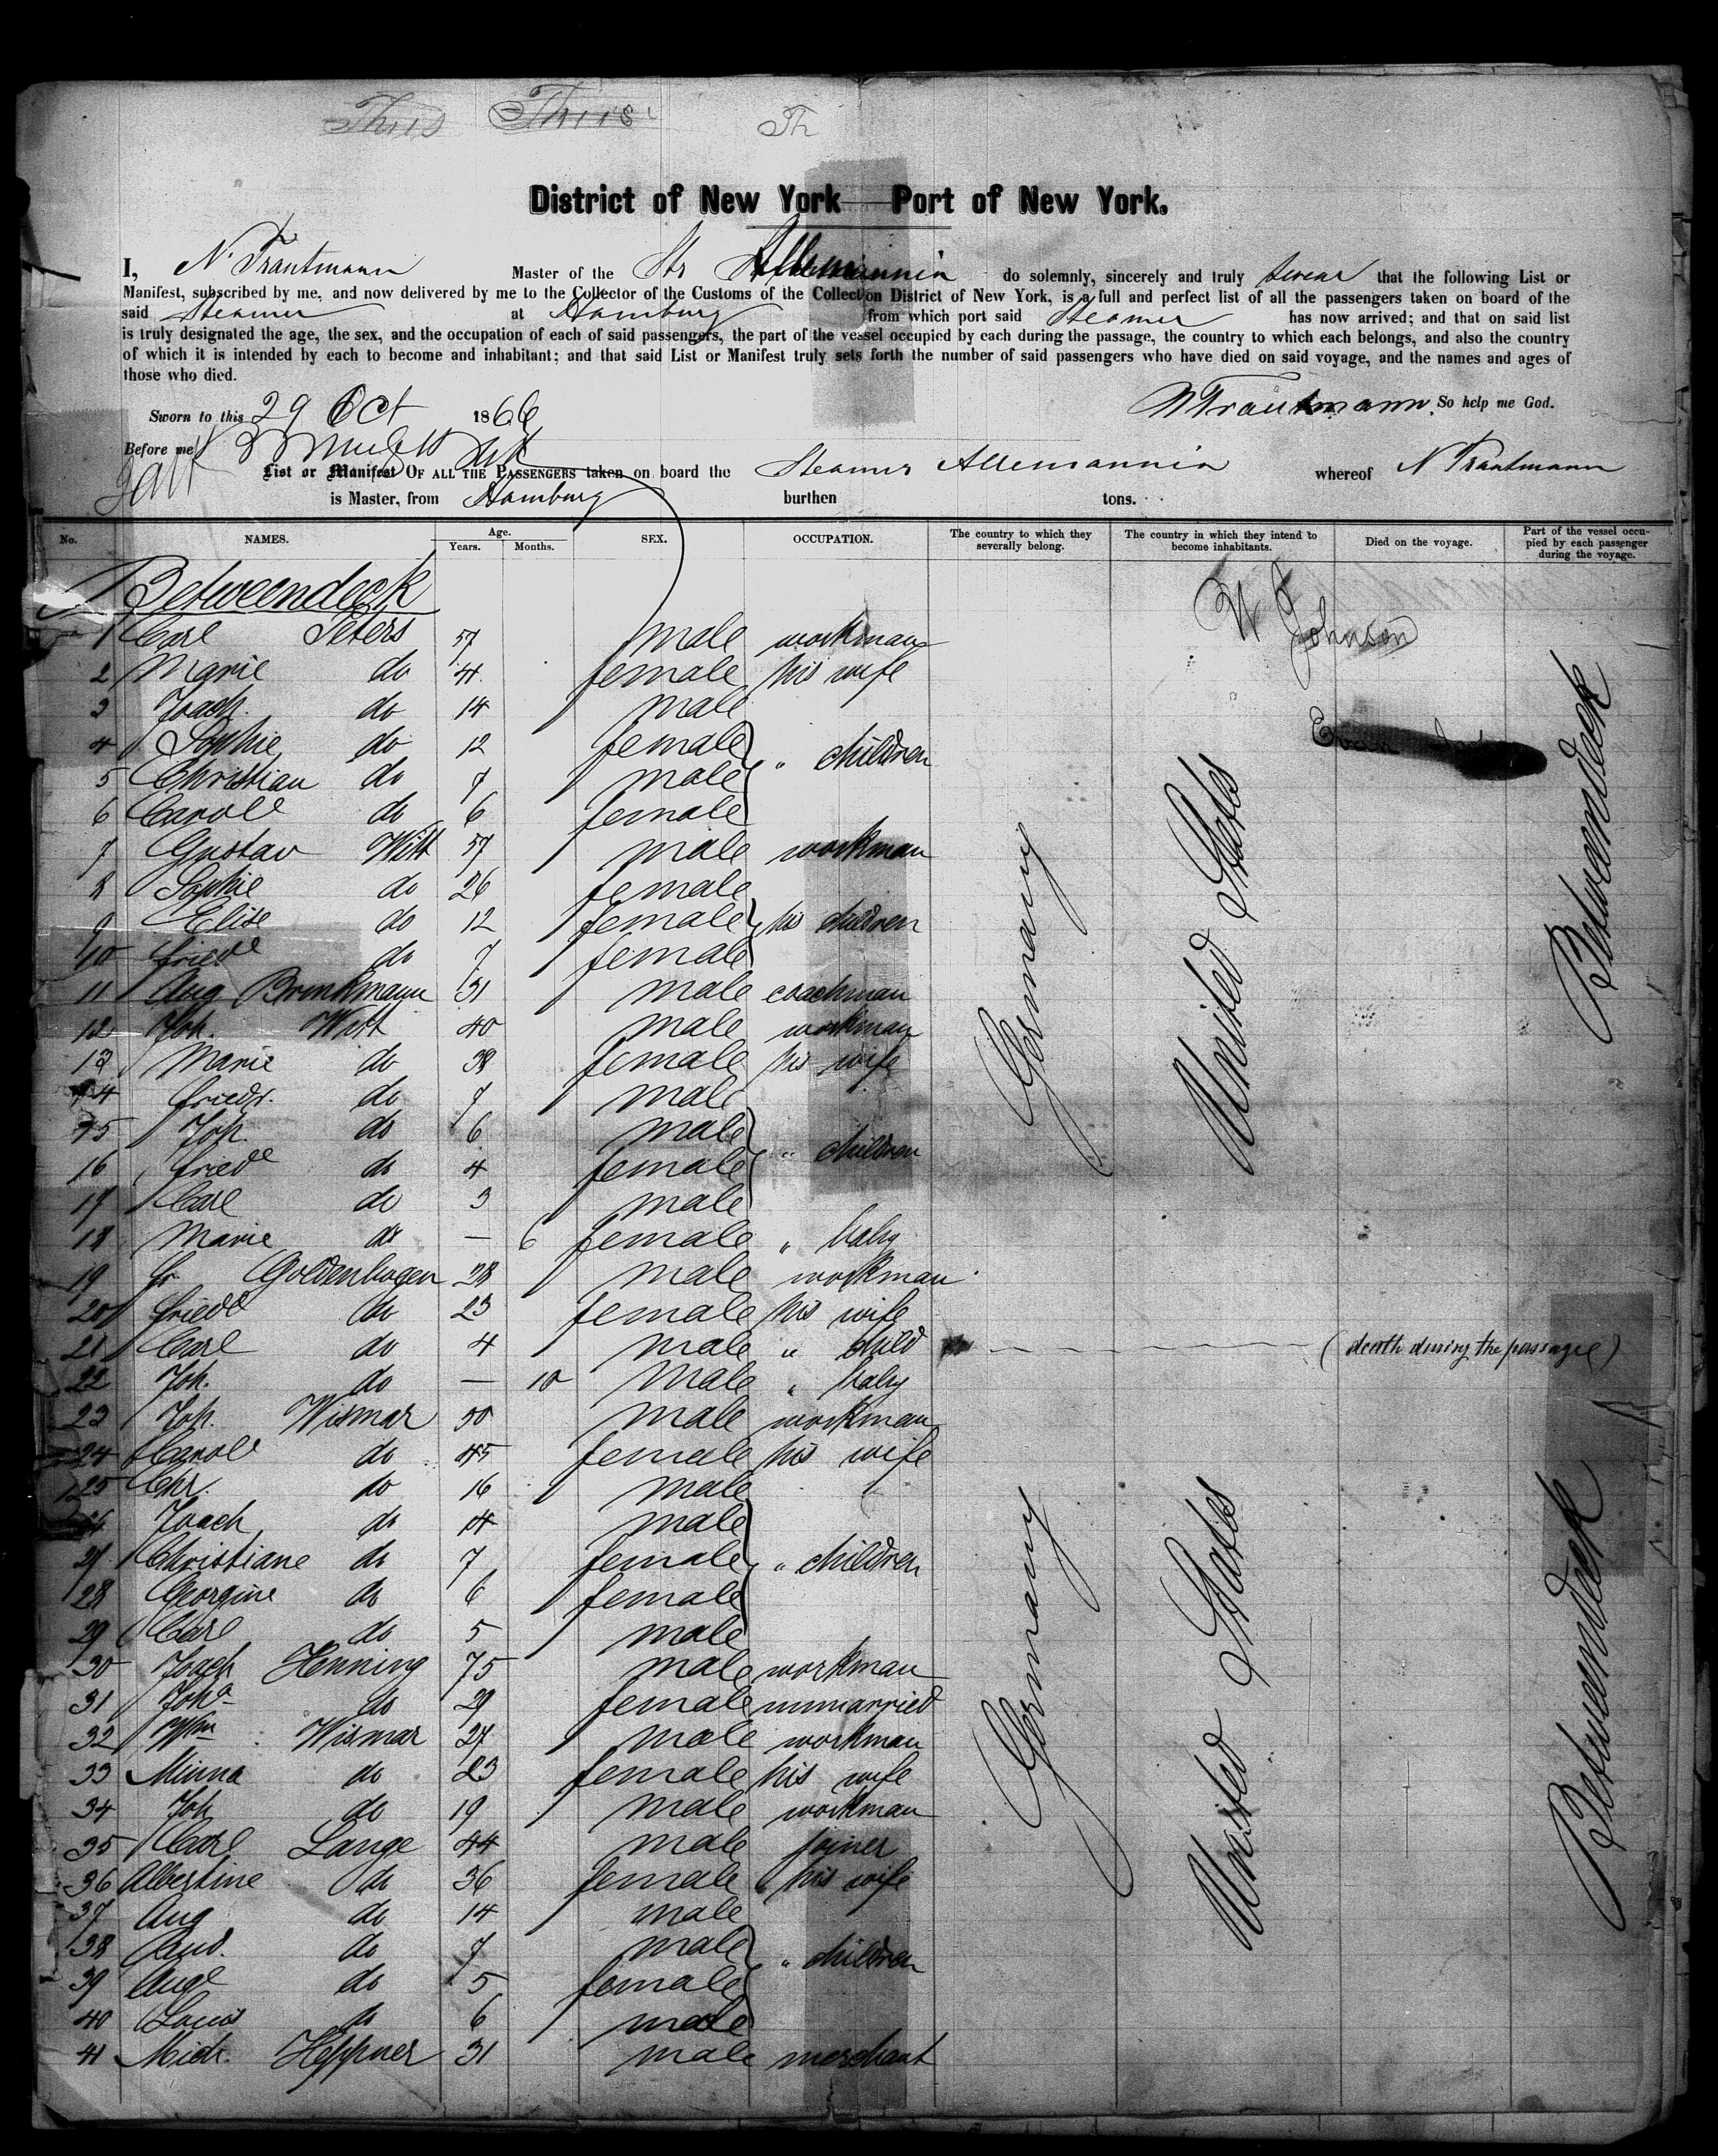 Thiis Thiis Th
District of New York Port of New York.
I, N. Trautmann Master of the Str Allemannia do solemnly, sincerely and truly swear that the following List or
Manifest, subscribed by me, and now delivered by me to the Collector of the Customs of the Collection District of New York, is a full and perfect list of all the passengers taken on board of the
said Steamer at Hamburg from which port said Steamer has now arrived; and that on said list
is truly designated the age, the sex, and the occupation of each of said passengers, the part of the vessel occupied by each during the passage, the country to which each belongs, and also the country
of which it is intended by each to become and inhabitant; and that said List or Manifest truly sets forth the number of said passengers who have died on said voyage, and the names and ages of
those who died.
NTrautmann. So help me God.
Sworn to this 29 Oct 1866
Before me
List or Manifest OF ALL THE PASSENGERS taken on board the Steamer Allemannia whereof N Trautmann
is Master, from Hamburg burthen tons.
No. NAMES. Age. Years. Months. SEX. OCCUPATION. The country to which they severally belong. The country in which they intend to become inhabitants. Died on the voyage. Part of the vessel occupied by each passenger during the voyage.
Betweendeck
W Johnson
1 Carl Peters 57 male workman
2 Marie do 4 female his wife
3 Joach. do 14 male
4 Sophie do 12 female " children
5 Christian do 7 male
6 Carole do 6 female
7 Gustav Witt 57 male workman
8 Sophie do 26 female
9 Elise do 12 female his children
10 friede do 7 female
11 Aug Brinkmann 31 male coachman
12 Joh. Witt 40 male workman
13 Marie do 38 female his wife
14 friedr. do 7 male
15 Joh. do 6 male " children
16 friede do 4 female
17 Carl do 3 male
18 Marie do — 6 female " baby
19 fr Goldenbogen 28 male workman
20 friede do 23 female his wife
21 Carl do 4 male " child (death during the passage)
22 Joh. do — 10 male " baby
23 Joh. Wismar 50 male workman
24 Carole do 45 female his wife
25 Chr. do 16 male
26 Joach do 14 male
27 Christiane do 7 female " children
28 Georgine do 6 female
29 Carl do 5 male
30 Joach Henning 75 male workman
31 Joha do 29 female unmarried
32 Wm Wismar 27 male workman
33 Minna do 23 female his wife
34 Joh do 19 male workman
35 Carl Lange 44 male joiner
36 Albertine do 36 female his wife
37 Aug do 14 male
38 Rud. do 7 male " children
39 Auge do 5 female
40 Louis do 6 male
41 Mich. Heppner 31 male merchant
Germany
United States
Betweendeck
Germany
United States
Betweendeck